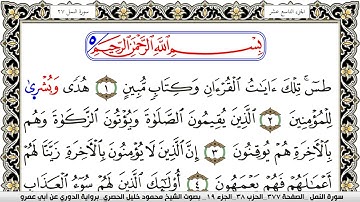 سورة النمل ٢٧ الجزء التاسع عشر
بِسْمِ اللَّهِ الرَّحْمَٰنِ الرَّحِيمِ
طسٓ ۚ تِلْكَ ءَايَٰتُ الْقُرْءَانِ وَكِتَابٍ مُّبِينٍ ١ هُدًى وَبُشْرَىٰ
لِلْمُؤْمِنِينَ ٢ الَّذِينَ يُقِيمُونَ الصَّلَوٰةَ وَيُؤْتُونَ الزَّكَوٰةَ وَهُم
بِالْأَخِرَةِ هُمْ يُوقِنُونَ ٣ إِنَّ الَّذِينَ لَا يُؤْمِنُونَ بِالْأَخِرَةِ زَيَّنَّا لَهُمْ
أَعْمَٰلَهُمْ فَهُمْ يَعْمَهُونَ ٤ أُوْلَٰٓئِكَ الَّذِينَ لَهُمْ سُوٓءُ الْعَذَابِ
سورة النمل الصفحة ٣٧٧ الحزب ٣٨ الجزء ١٩ بصوت الشيخ محمود خليل الحصري برواية الدوري عن أبي عمرو